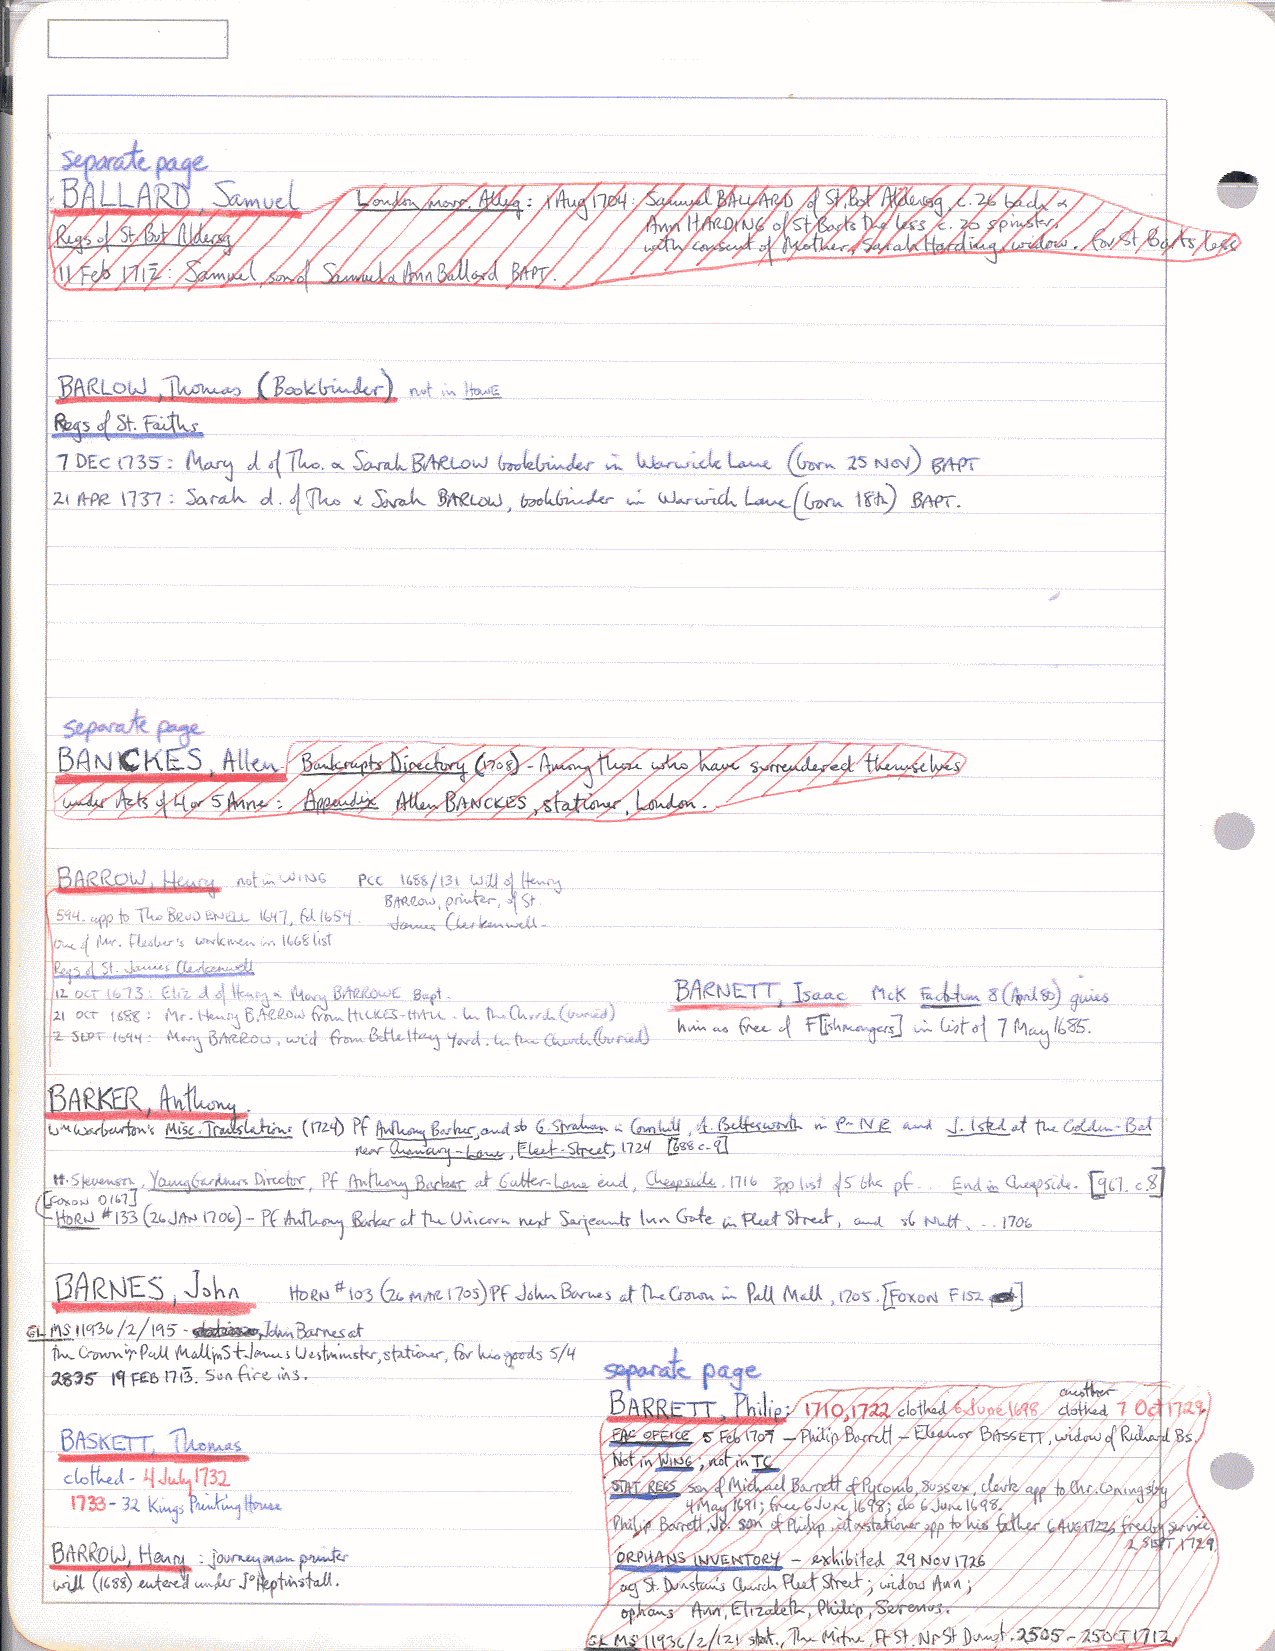 separate page
BALLARD, Samuel London marr. Alleg: 1 Aug 1704: Samuel BALLARD of St. Bot Aldersg c. 26 bach &
Ann HARDING of St Barts the less c. 20 spinster,
Regs of St. Bot Aldersg with consent of Mother, Sarah Harding, widow. for St Barts less
11 Feb 1712: Samuel, son of Samuel & Ann Ballard BAPT.
BARLOW, Thomas (Bookbinder) not in HOWE
Regs of St. Faiths
7 DEC 1735: Mary d of Tho. & Sarah BARLOW bookbinder in Warwick Lane (born 25 NOV) BAPT
21 APR 1737: Sarah d. of Tho & Sarah BARLOW, bookbinder in Warwick Lane (born 18th) BAPT.
separate page
BANCKES, Allen Bankrupts Directory (1708) - Among those who have surrendered themselves
under Acts of 4 or 5 Anne: Appendix Allen BANCKES, stationer, London.
BARROW, Henry not in WING PCC 1688/131 Will of Henry
BARROW, printer, of St.
James Clerkenwell.
594. app to Tho BRUDENELL 1647, fd 1654.
One of Mr. Flesher's workmen in 1668 list
Regs of St. James Clerkenwell
12 OCT 1673: Eliz d of Henry & Mary BARROWE Bapt.
21 OCT 1688: Mr. Henry BARROW from HICKES-HALL. In the Church (buried)
2 SEPT 1694: Mary BARROW, wid from Hay Yard. In the Church (buried)
BARNETT, Isaac McK Factotum 8 (April 80) gives
him as free of F[ishmongers] in list of 7 May 1685.
BARKER, Anthony.
Wm Warburton's Misc. Translations (1724) PF Anthony Barker, and sb G. Strahan in Cornhill, A. Bettesworth in P-N R and J. Isted at the Golden-Ball
near Chancery-Lane, Fleet-Street, 1724 [688 c.9]
H. Stevenson, Young Gardners Director, PF Anthony Barker at Gutter-Lane end, Cheapside. 1716 3pp list of 5 bks pf... End in Cheapside. [967. c.8]
[FOXON D167]
HORN #133 (26 JAN 1706) - PF Anthony Barker at the Unicorn next Serjeants Inn Gate in Fleet Street, and sb Nutt... 1706
BARNES, John HORN #103 (26 MAR 1705) PF John Barnes at the Crown in Pall Mall, 1705. [FOXON F152]
GL MS 11936/2/195 - John Barnes at
the Crown in Pall Mall in St James Westminster, stationer, for his goods 5/4
2835 19 FEB 1713. Sun fire ins.
BASKETT, Thomas
clothed - 4 July 1732
1733 - 32 Kings Printing House
BARROW, Henry: journeyman printer
will (1688) entered under Jo Heptinstall.
separate page
BARRETT, Philip: 1710, 1722 clothed 6 June 1698 another clothed 7 Oct 1729
FAC OFFICE 5 Feb 1707 - Philip Barrett - Eleanor BASSETT, widow of Richard Bs.
Not in WING; not in TC
STAT REGS son of Michael Barrett of Pycomb, Sussex, clerk app to Chr. Coningsby
4 May 1691; free 6 June 1698; clo 6 June 1698.
Philip Barrett, Jr. son of Philip, cit & stationer app to his father 6 AUG 1722, free by service
2 SEPT 1729.
ORPHANS INVENTORY - exhibited 29 NOV 1726
ag St. Dunstan's Church Fleet Street; widow Ann;
orphans Ann, Elizabeth, Philip, Serenus.
GL MS 11936/2/121 stat., The Mitre, Flt St. Nr St Dunst. 2505 - 25 OCT 1712.